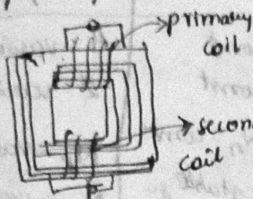 primary
coil
secon
coil